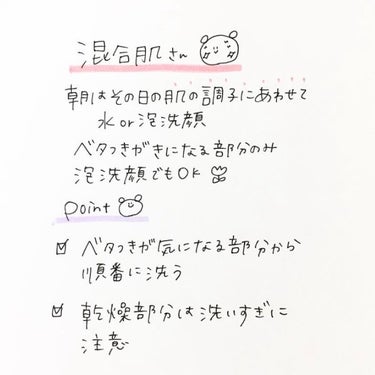 混合肌さん
朝はその日の肌の調子にあわせて
水or泡洗顔
ベタつきがきになる部分のみ
泡洗顔でもOK
point
ベタつきが気になる部分から
順番に洗う
乾燥部分は洗いすぎに
注意